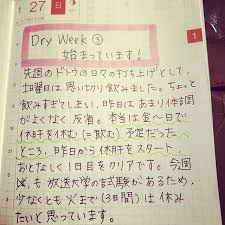 1 27 日
Dry Week ③
始まっています!
1
先週のドトウの日々の打ち上げとして、
土曜日は思い切り飲みました。ちょっと
飲みすぎてしまい、昨日はあまり体調
がよくなく反省。本当は金〜日で
休肝を休む(=飲む)予定だったへ
ところ、昨日から休肝をスタート。
おとなしく1日目をクリアです。今週
も放送大学の試験があるため、
少なくとも火まで(3日間)は休み
たいと思っています。